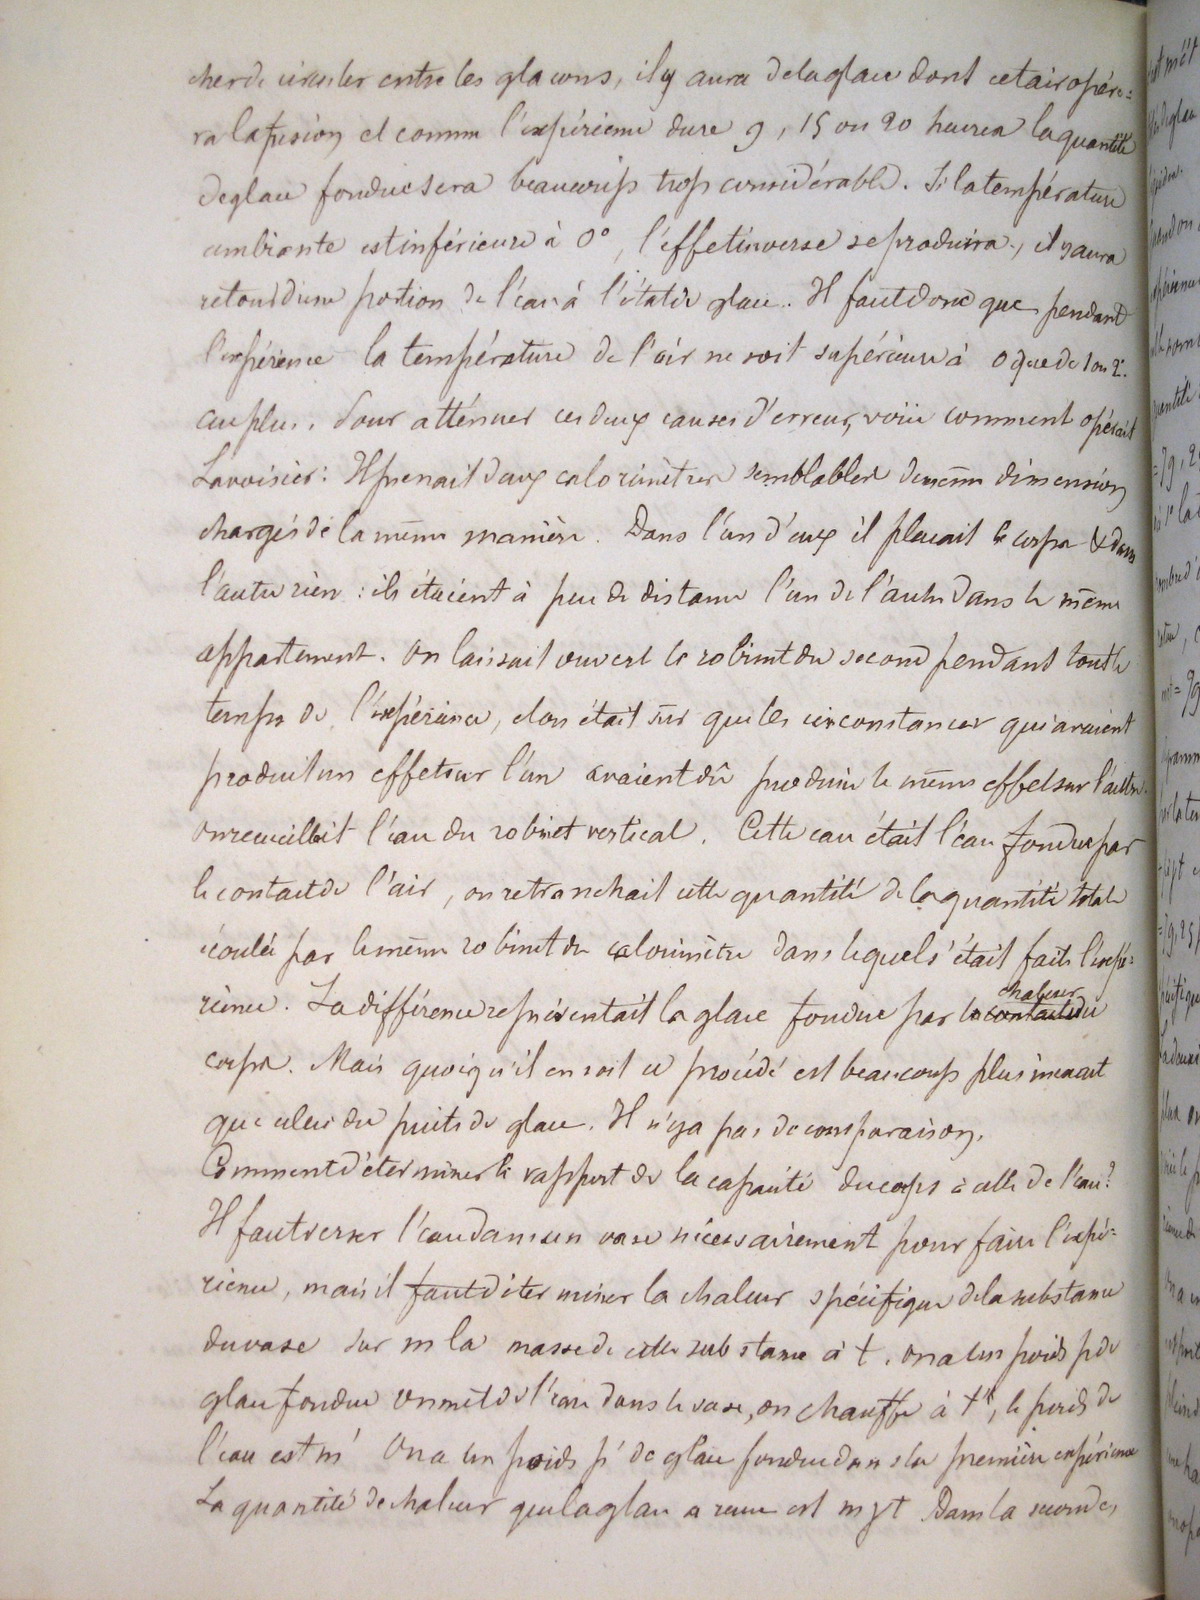 cher de circuler entre les glaçons, il y aura de la glace dont cet air opére=
ra la fusion et comme l'expérience dure 9, 15 ou 20 heures la quantité
de glace fondue sera beaucoup trop considérable. Si la température
ambiante est inférieure à 0°, l'effet inverse se produira, il y aura
retour d'une portion de l'eau à l'état de glace. Il faut donc que pendant
l'expérience la température de l'air ne soit supérieure à 0 que de 1 ou 2°
au plus. Pour atténuer ces deux causes d'erreur, voici comment opérait
Lavoisier: Il prenait deux calorimètres semblables de même dimension
chargés de la même manière. Dans l'un d'eux il plaçait le corps & dans
l'autre rien: ils étaient à peu de distance l'un de l'autre dans le même
appartement. On laissait ouvert le robinet du second pendant tout le
temps de l'expérience, et on était sûr que les circonstances qui avaient
produit un effet sur l'un avaient dû produire le même effet sur l'autre.
On recueillait l'eau du robinet vertical. Cette eau était l'eau fondue par
le contact de l'air, on retranchait cette quantité de la quantité totale
écoulée par le même robinet du calorimètre dans lequel s'était faite l'expé=
rience. La différence représentait la glace fondue par la chaleur du
corps. Mais quoiqu'il en soit ce procédé est beaucoup plus inexact
que celui du puits de glace. Il n'y a pas de comparaison.
Comment déterminer le rapport de la capacité du corps à celle de l'eau?
Il faut verser l'eau dans un vase nécessairement pour faire l'expé=
rience, mais il faut déterminer la chaleur spécifique de la substance
du vase sur m la masse de cette substance à t. on a un poids p de
glace fondue on met de l'eau dans le vase, on chauffe à t', le poids de
l'eau est m' On a un poids p' de glace fondue dans la première expérience
La quantité de chaleur que la glace a reçue est m γ t Dans la seconde,